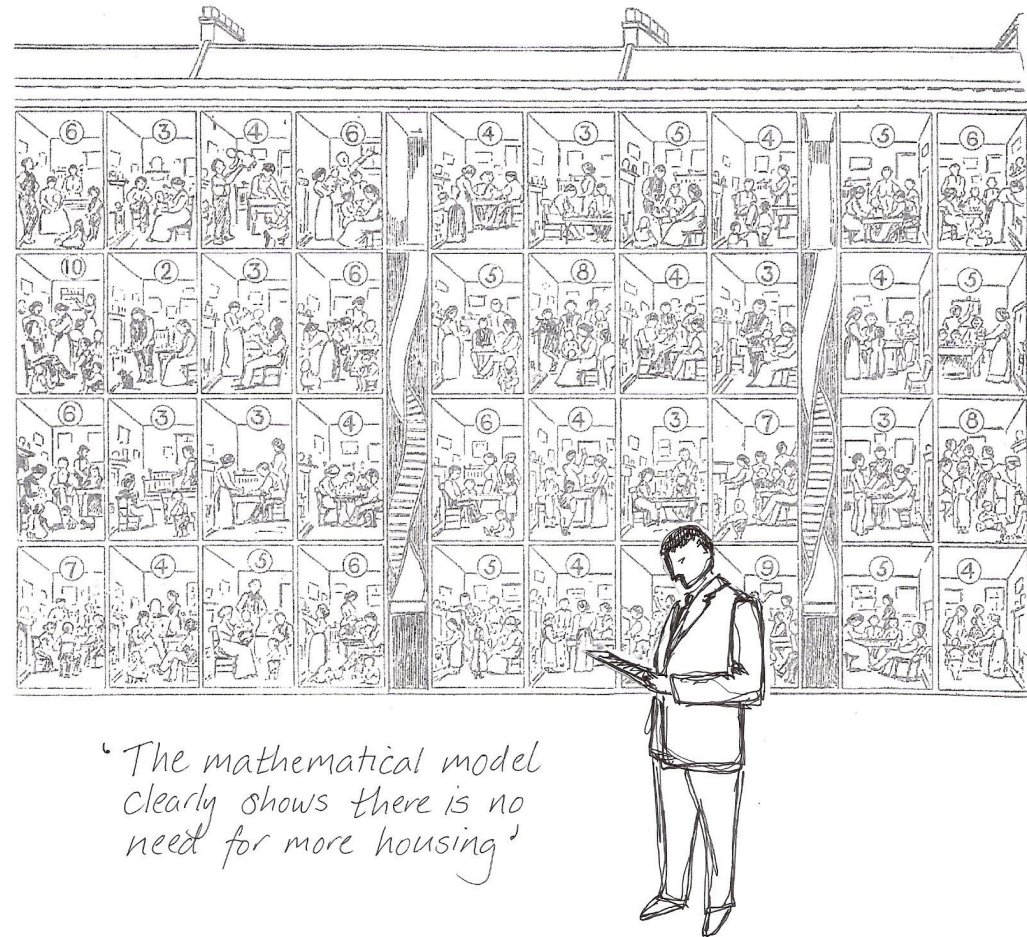 6 3 4 6 4 3 5 4 5 6
10 2 3 6 5 8 4 3 4 5
6 3 3 4 6 4 3 7 3 8
7 4 5 6 5 4 9 5 4
‘The mathematical model
clearly shows there is no
need for more housing’